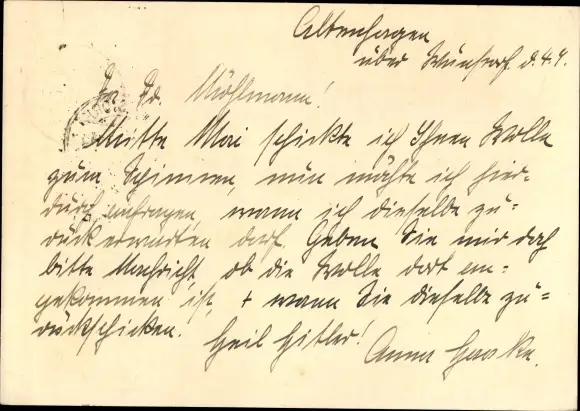 Altenhagen
über Wünstorf d. 4.4.
Fr. Fd. Möhlmann!
Mitte Mai schickte ich Ihnen Wolle
zum Spinnen, nun möchte ich hier-
durch anfragen, wann ich dieselbe zu-
rück erwarten darf. Geben Sie mir doch
bitte Nachricht, ob die Wolle dort an-
gekommen ist, + wann Sie dieselbe zu-
rückschicken.
Heil Hitler!
Anna